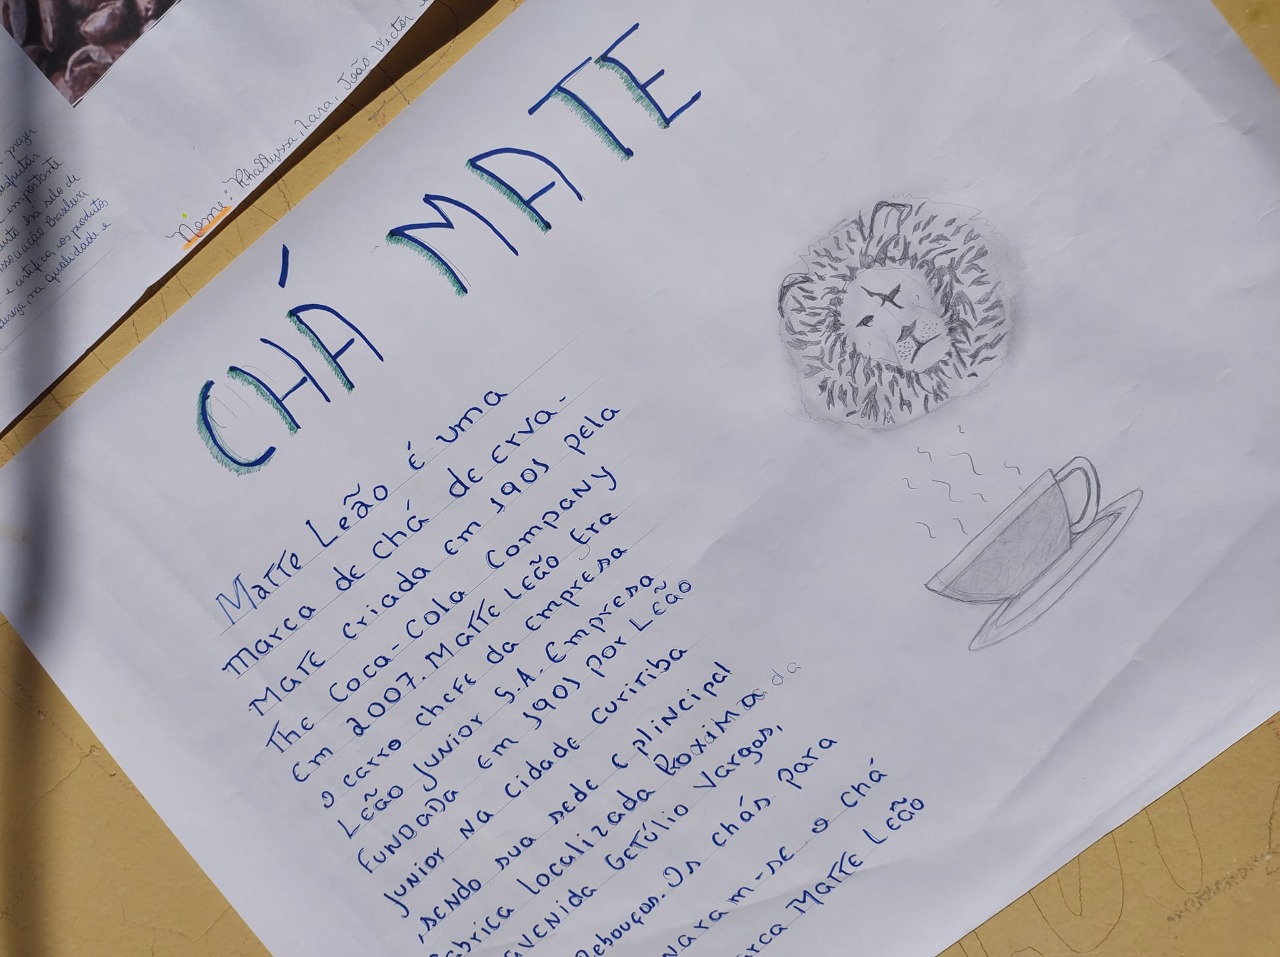 Nome: Rhallyssa, Lara, João Victor
importante
selo de
associação Brasileira
e certifica os produtos
qualidade e
CHÁ MATE
Matte Leão é uma
marca de chá de erva-
mate criada em 1901 pela
The Coca-Cola Company
em 2007. Matte Leão era
o carro chefe da empresa
Leão Junior S.A. Empresa
fundada em 1901 por Leão
Junior na cidade curitiba
,sendo sua sede e plincipal
fabrica localizada Proxima da
avenida Getúlio Vargas,
Rebouças. Os chás para
o chá
marca Matte Leão